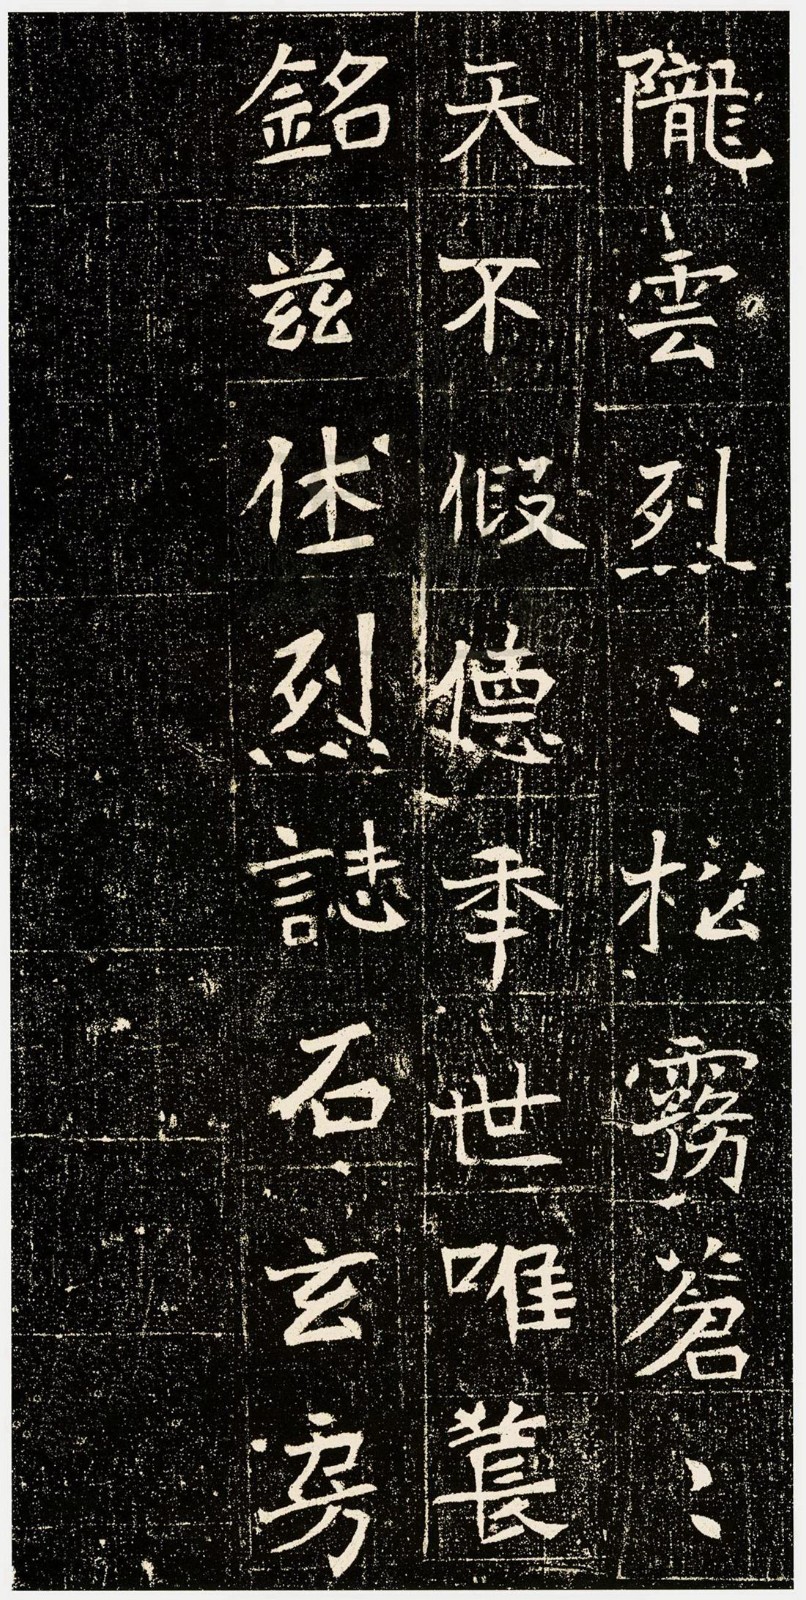 隴雲烈〻松霧蒼〻
天不假德年世唯
銘茲休烈誌石玄房